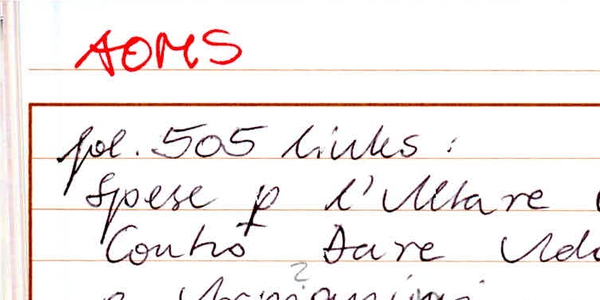 AOMS
fol. 505 links:
Spese p l'Altare
Contro Dare